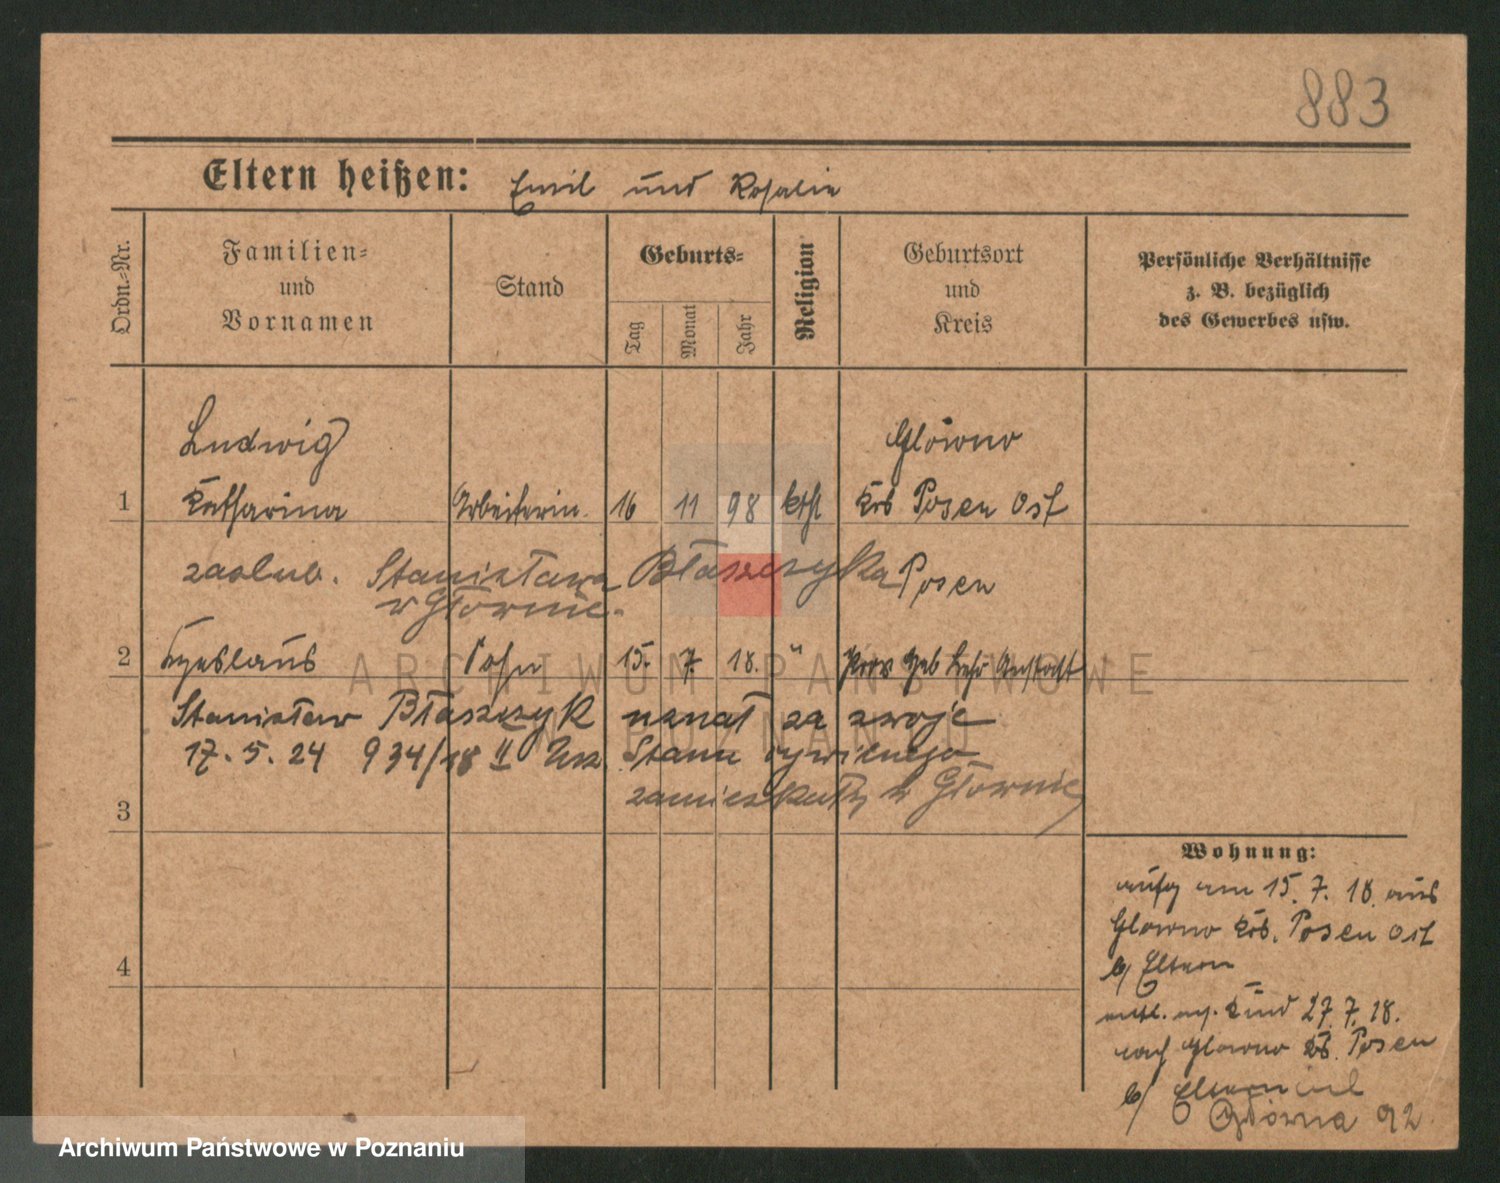 883
Eltern heißen: Emil und Rosalie
Ordn.-Nr.
Familien-
und
Vornamen
Stand
Geburts-
Tag
Monat
Jahr
Religion
Geburtsort
und
Kreis
Persönliche Verhältnisse
z. B. bezüglich
des Gewerbes usw.
Ludwig
Glowno
1 Katharina Arbeiterin. 16 11 98 kthl Krs Posen Ost
zaślub. Stanisława Błaszczyka
w Głównie.
Posen
2 Sohn 15. 7. 18. " Prov Heb Lehr Anstalt
Stanisław Błaszczyk uznał za swoje
17. 5. 24 934/18 II Urz. Stanu cywilnego
zamieszkały w Głównie
3
4
Wohnung:
aufg am 15. 7. 18. aus
Glowno Krs. Posen Ost
b/ Eltern
entl. m. Kind 27. 7. 18.
nach Glowno Krs. Posen
b/ Eltern
Główna 92.
ARCHIWUM PAŃSTWOWE
W POZNANIU
Archiwum Państwowe w Poznaniu